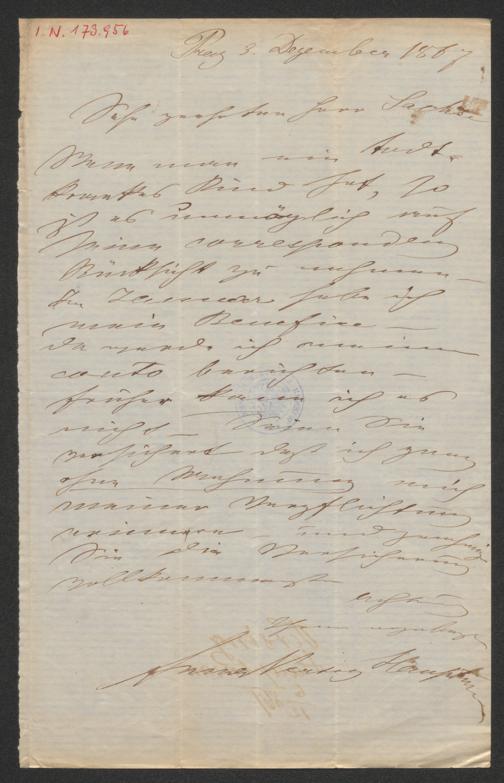 I. N. 173.956
Prag 3. Dezember 1867
Sehr geehrter Herr
Wenn man ein todt-
krankes Kind hat, so
ist es unmöglich auf
seine correspondenz
Rücksicht zu nehmen –
Im Januar habe ich
mein Benefice –
da werde ich mein
conto berichten –
früher kann ich es
nicht – Seien Sie
versichert daß ich ganz
ohne Mahnung mich
meiner Verpflichtung
erinnere – und
Sie die Versicherung
vollkommenster
Achtung
Ihrer ergebenen